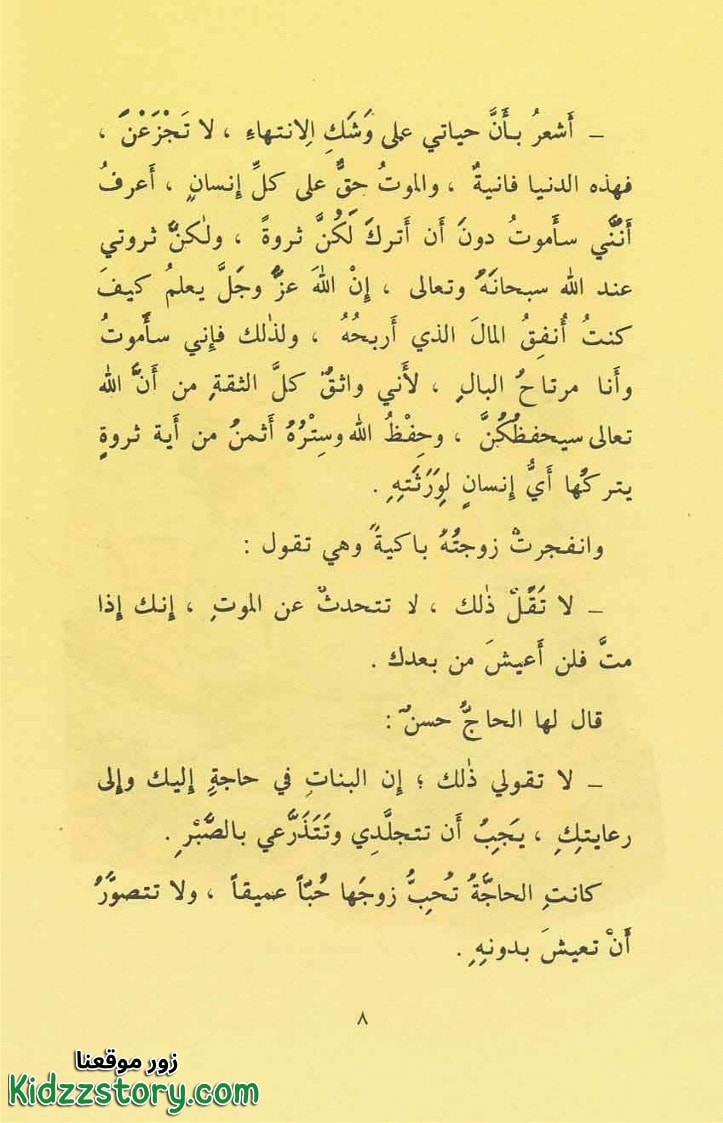 – أَشعرُ بـأَنَّ حياتي على وَشَكِ الإنتهاءِ ، لا تَجْزَعْنَ ،
فهذه الدنيا فانيةٌ ، والموتُ حقٌّ على كلِّ إِنسانٍ ، أَعرفُ
أَنَّني سأَموتُ دونَ أَن أَتركَ لَكُنَّ ثروةً ، ولٰكنَّ ثروتي
عند الله سبحانَهُ وتعالى ، إِنَّ اللهَ عزَّ وجَلَّ يعلمُ كيفَ
كنتُ أُنفِقُ المالَ الذي أَربحُهُ ، ولذٰلك فإِني سأَموتُ
وأَنا مرتاحُ البالِ ، لأَني واثقٌ كلَّ الثقةِ من أَنَّ الله
تعالى سيحفظُكُنَّ ، وحِفْظُ الله وسِتْرُهُ أَثمنُ من أَية ثروةٍ
يتركُها أَيُّ إِنسانٍ لِوَرَثَتِهِ .
وانفجرتْ زوجتُهُ باكيةً وهي تقول :
– لا تَقُلْ ذٰلك ، لا تتحدثْ عن الموتِ ، إِنك إِذا
متَّ فلن أَعيشَ من بعدك .
قال لها الحاجُّ حسنٌ :
– لا تقولي ذٰلك ؛ إِن البناتِ في حاجةٍ إِليك وإِلى
رعايتِكِ ، يَجِبُ أَن تتجلَّدي وتَتَذَرَّعي بالصَّبْرِ .
كانتِ الحاجَّةُ تُحِبُّ زوجَها حُبّاً عميقاً ، ولا تتصوَّرُ
أَنْ تعيشَ بدونِهِ .
٨
زور موقعنا
Kidzzstory.com